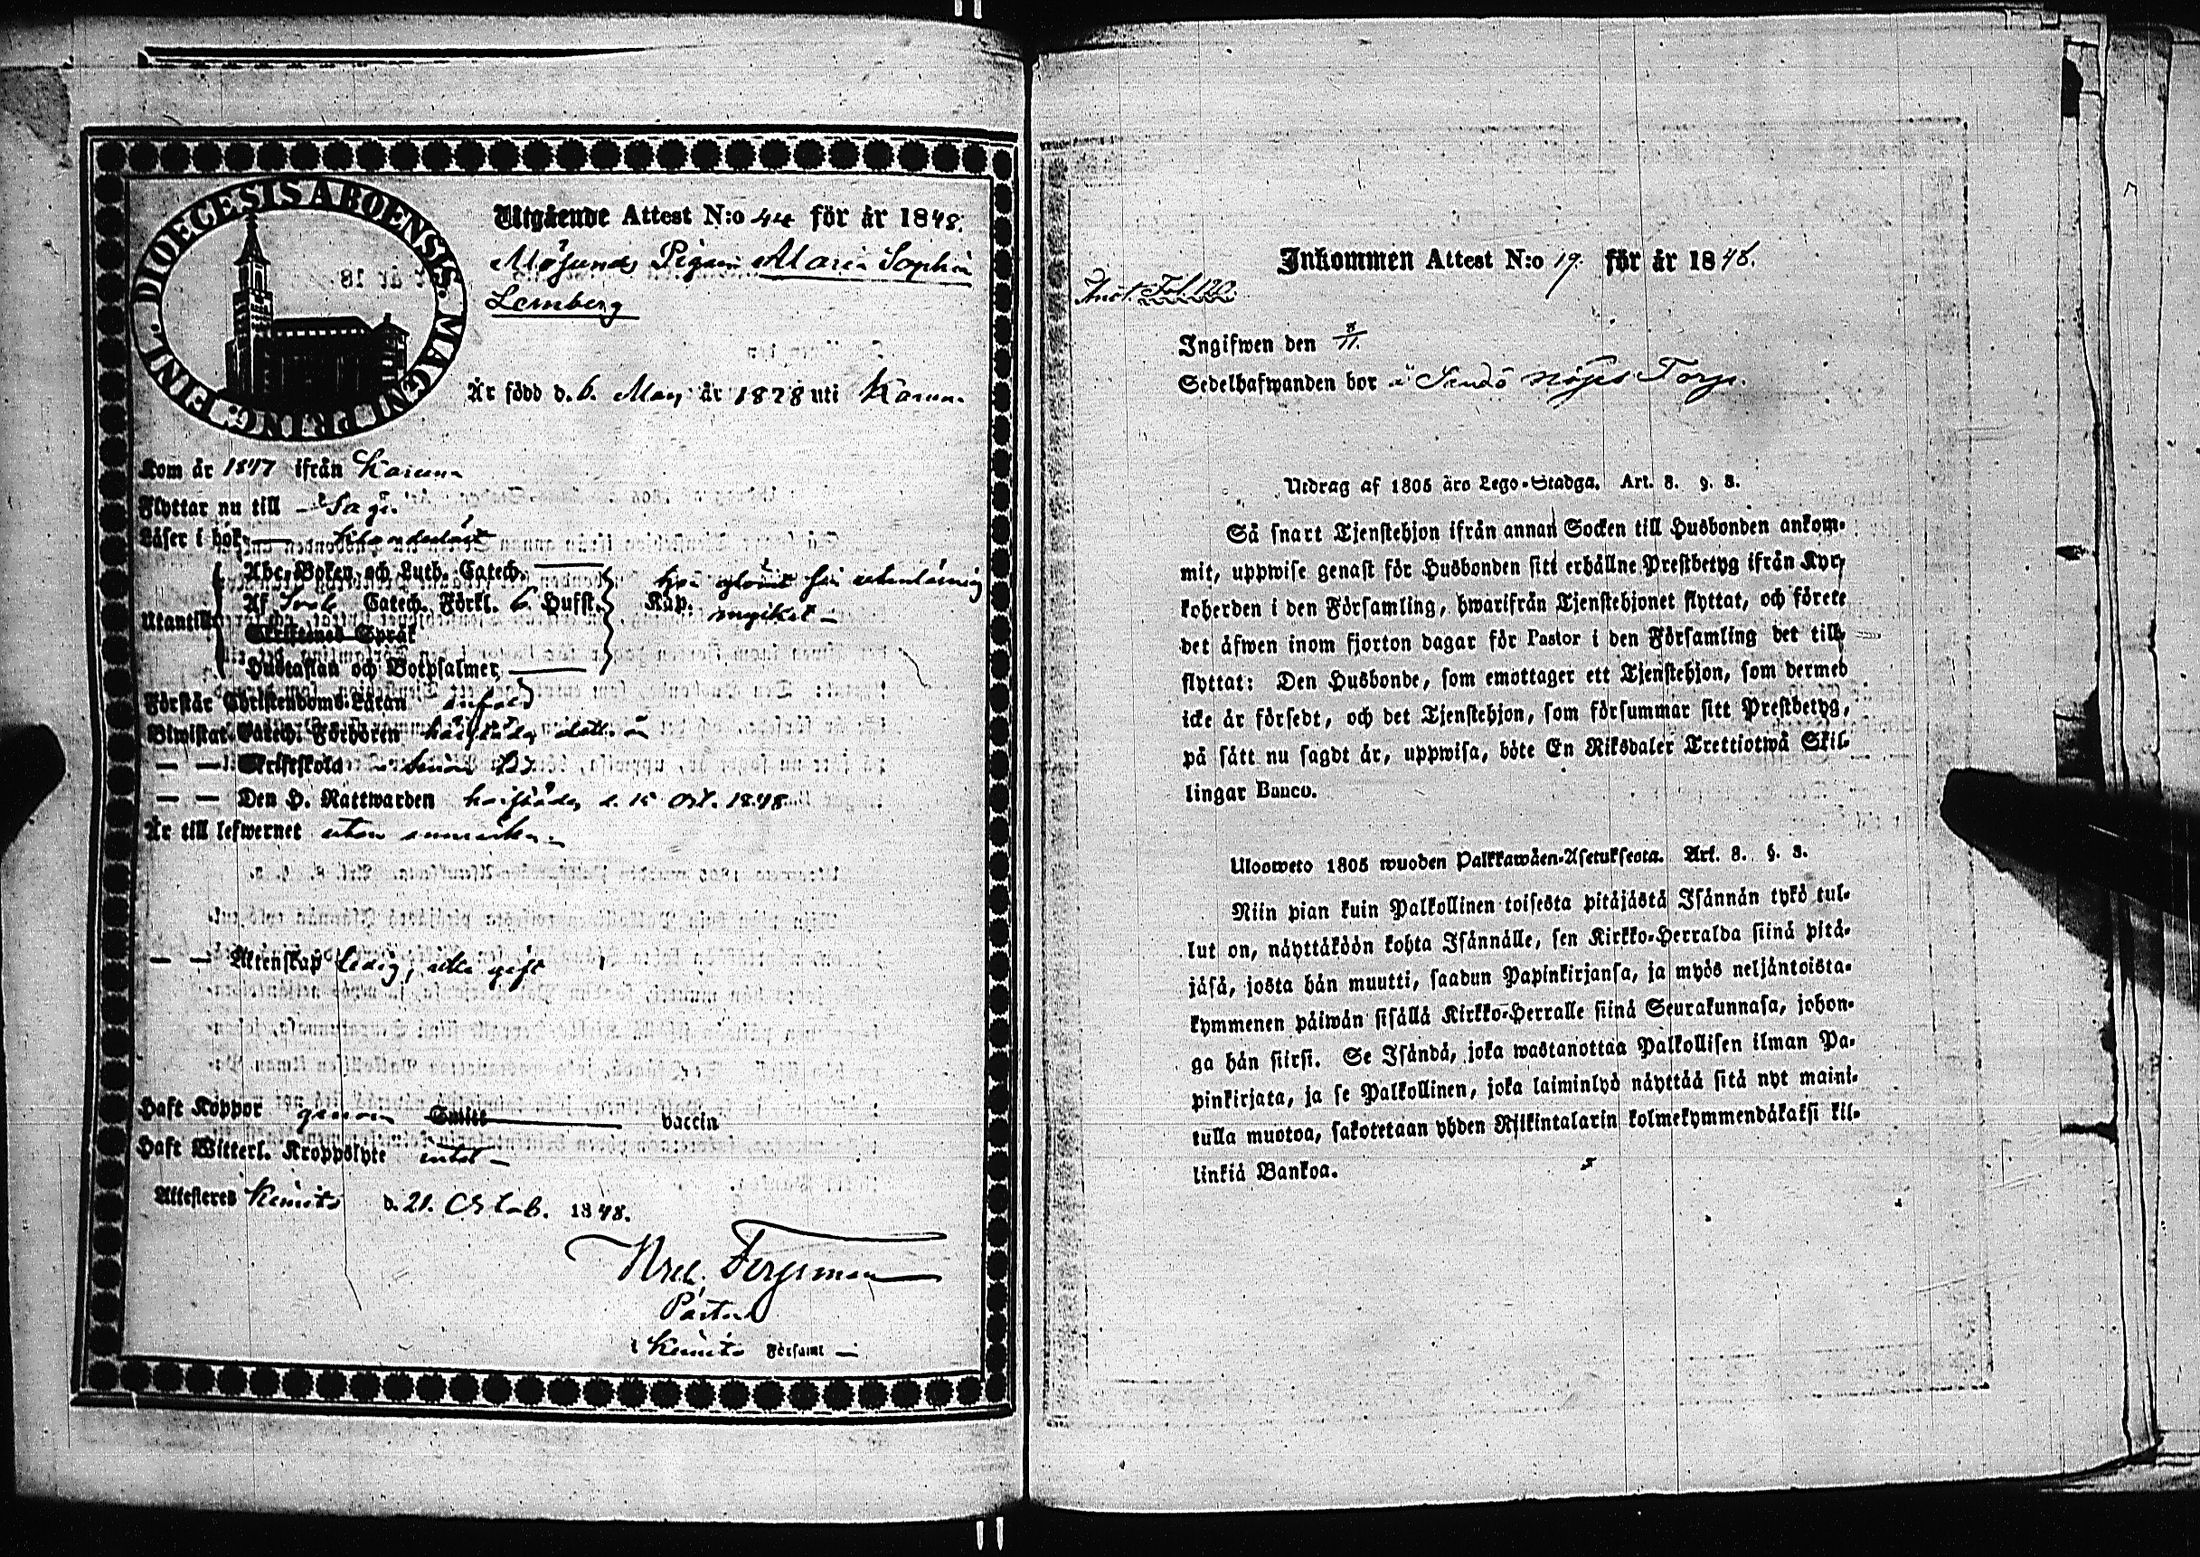 DIOECESIS ABOENSIS. MAGNI PRINC. FINL.
Utgående Attest N:o 44 för år 1848.
Pigan Maria Sophia
Lernberg
Är född d. 6. May år 1828 uti Karuna
Kom år 1847 ifrån Karuna
Flyttar nu till Sagu.
Läser i bok
Abc-Boken och Luth. Catech.
Af Catech. Förkl. 6 Hufst. Kap.
Utantill
Skriftenes Språk
mycket –
Hustaflan och Botpsalmer
Förstår Christendoms-Läran
Biwistat Catech. Förhören
– – Skriftskola
– – Den H. Nattwarden d. 15 Oct. 1848
Är till lefwernet utan anmärkn. –
– – Äktenskap ledig, icke gift
Haft Koppor genom Smitt vaccin
Haft Witterl. Kroppslyte intet –
Attesteres Kimito d. 21. Octob. 1848.
Pastor
i Kimito Församl –
Inkommen Attest N:o 19. för år 1848.
Inot. Fol. 120.
Ingifwen den 8/11.
Sedelhafwanden bor å Torp.
Utdrag af 1805 års Lego-Stadga. Art. 8. §. 3.
Så snart Tjenstehjon ifrån annan Socken till Husbonden ankom-
mit, uppwise genast för Husbonden sitt erhållne Prestbetyg ifrån Kyr-
koherden i den Församling, hwarifrån Tjenstehjonet flyttat, och förete
det äfwen inom fjorton dagar för Pastor i den Församling det till-
flyttat: Den Husbonde, som emottager ett Tjenstehjon, som dermed
icke är försedt, och det Tjenstehjon, som försummar sitt Prestbetyg,
på sätt nu sagdt är, uppwisa, böte En Riksdaler Trettiotwå Skil-
lingar Banco.
Ulosweto 1805 wuoden Palkkawäen-Asetuksesta. Art. 8. §. 3.
Niin pian kuin Palkollinen toisesta pitäjästä Isännän tykö tul-
lut on, näyttäköön kohta Isännälle, sen Kirkko-Herralda siinä pitä-
jäsä, josta hän muutti, saadun Papinkirjansa, ja myös neljäntoista-
kymmenen päiwän sisällä Kirkko-Herralle siinä Seurakunnasa, johon-
ga hän siirsi. Se Isändä, joka wastanottaa Palkollisen ilman Pa-
pinkirjata, ja se Palkollinen, joka laiminlyö näyttää sitä nyt maini-
tulla muotoa, sakotetaan yhden Riikintalarin kolmekymmendäkaksi kil-
linkiä Bankoa.